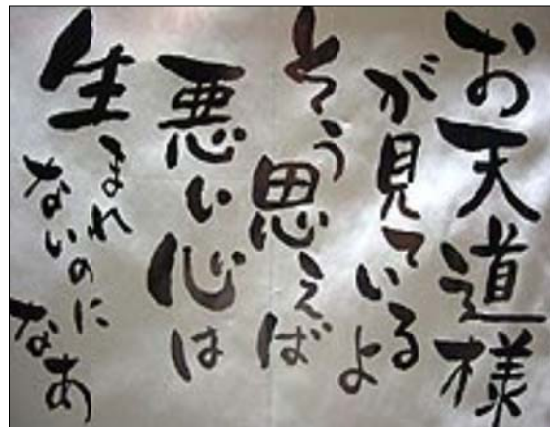 お天道様
が見ているよ
そう思えば
悪い心は
生まれ
ないのに
なあ